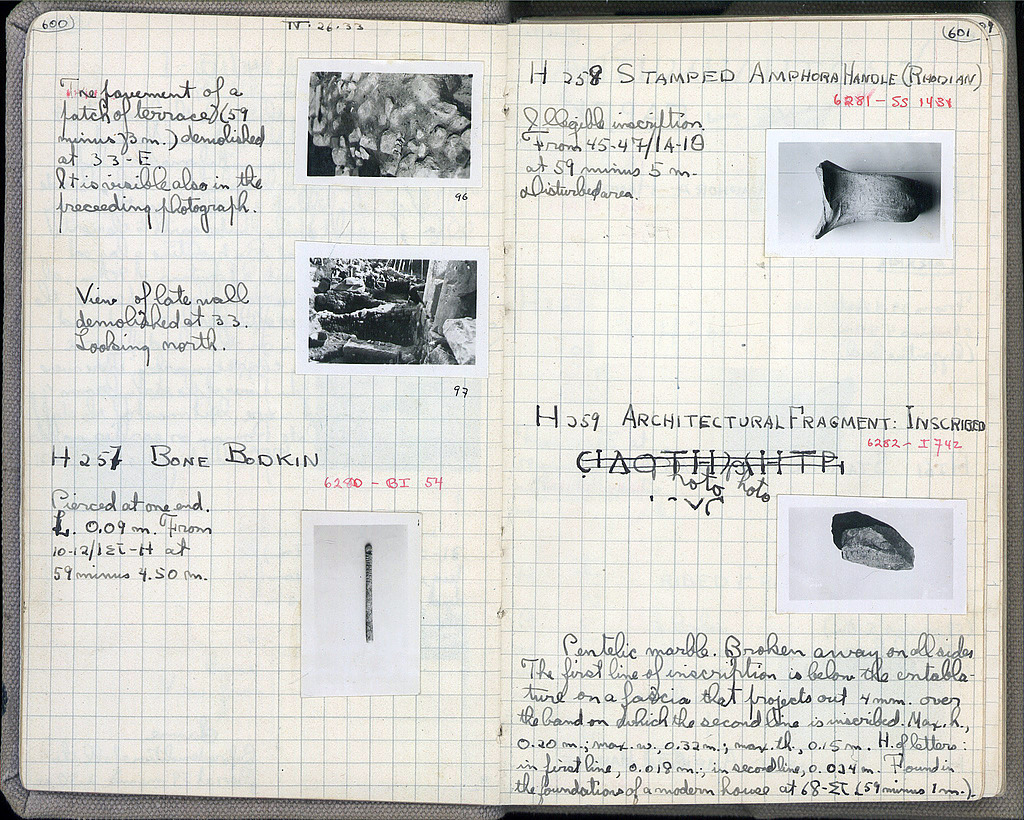 600
IV. 26.33
The pavement of a
patch of terrace (59
minus 3 m.) demolished
at 33-E
It is visible also in the
preceeding photograph.
96
View of late wall
demolished at 33.
Looking north.
97
H 257 BONE BODKIN
6280 - BI 54
Pierced at one end.
L. 0.09 m. From
10-12/ΙΣΤ-Η at
59 minus 4.50 m.
601
H 258 STAMPED AMPHORA HANDLE (RHODIAN)
6281 - SS 1431
Illegible inscription.
From 45-47/ΙΑ-ΙΘ
at 59 minus 5 m.
Disturbed area.
H 259 ARCHITECTURAL FRAGMENT: INSCRIBED
6282 - I 742
Pentelic marble. Broken away on all sides.
The first line of inscription is below the entabla-
ture on a fascia that projects out 4 mm. over
the band on which the second line is inscribed. Max. h.,
0.20 m.; max. w., 0.32 m.; max. th., 0.15 m. H. of letters:
in first line, 0.018 m.; in second line, 0.034 m. Found in
the foundations of a modern house at 68-ΣΤ (59 minus 1 m.).